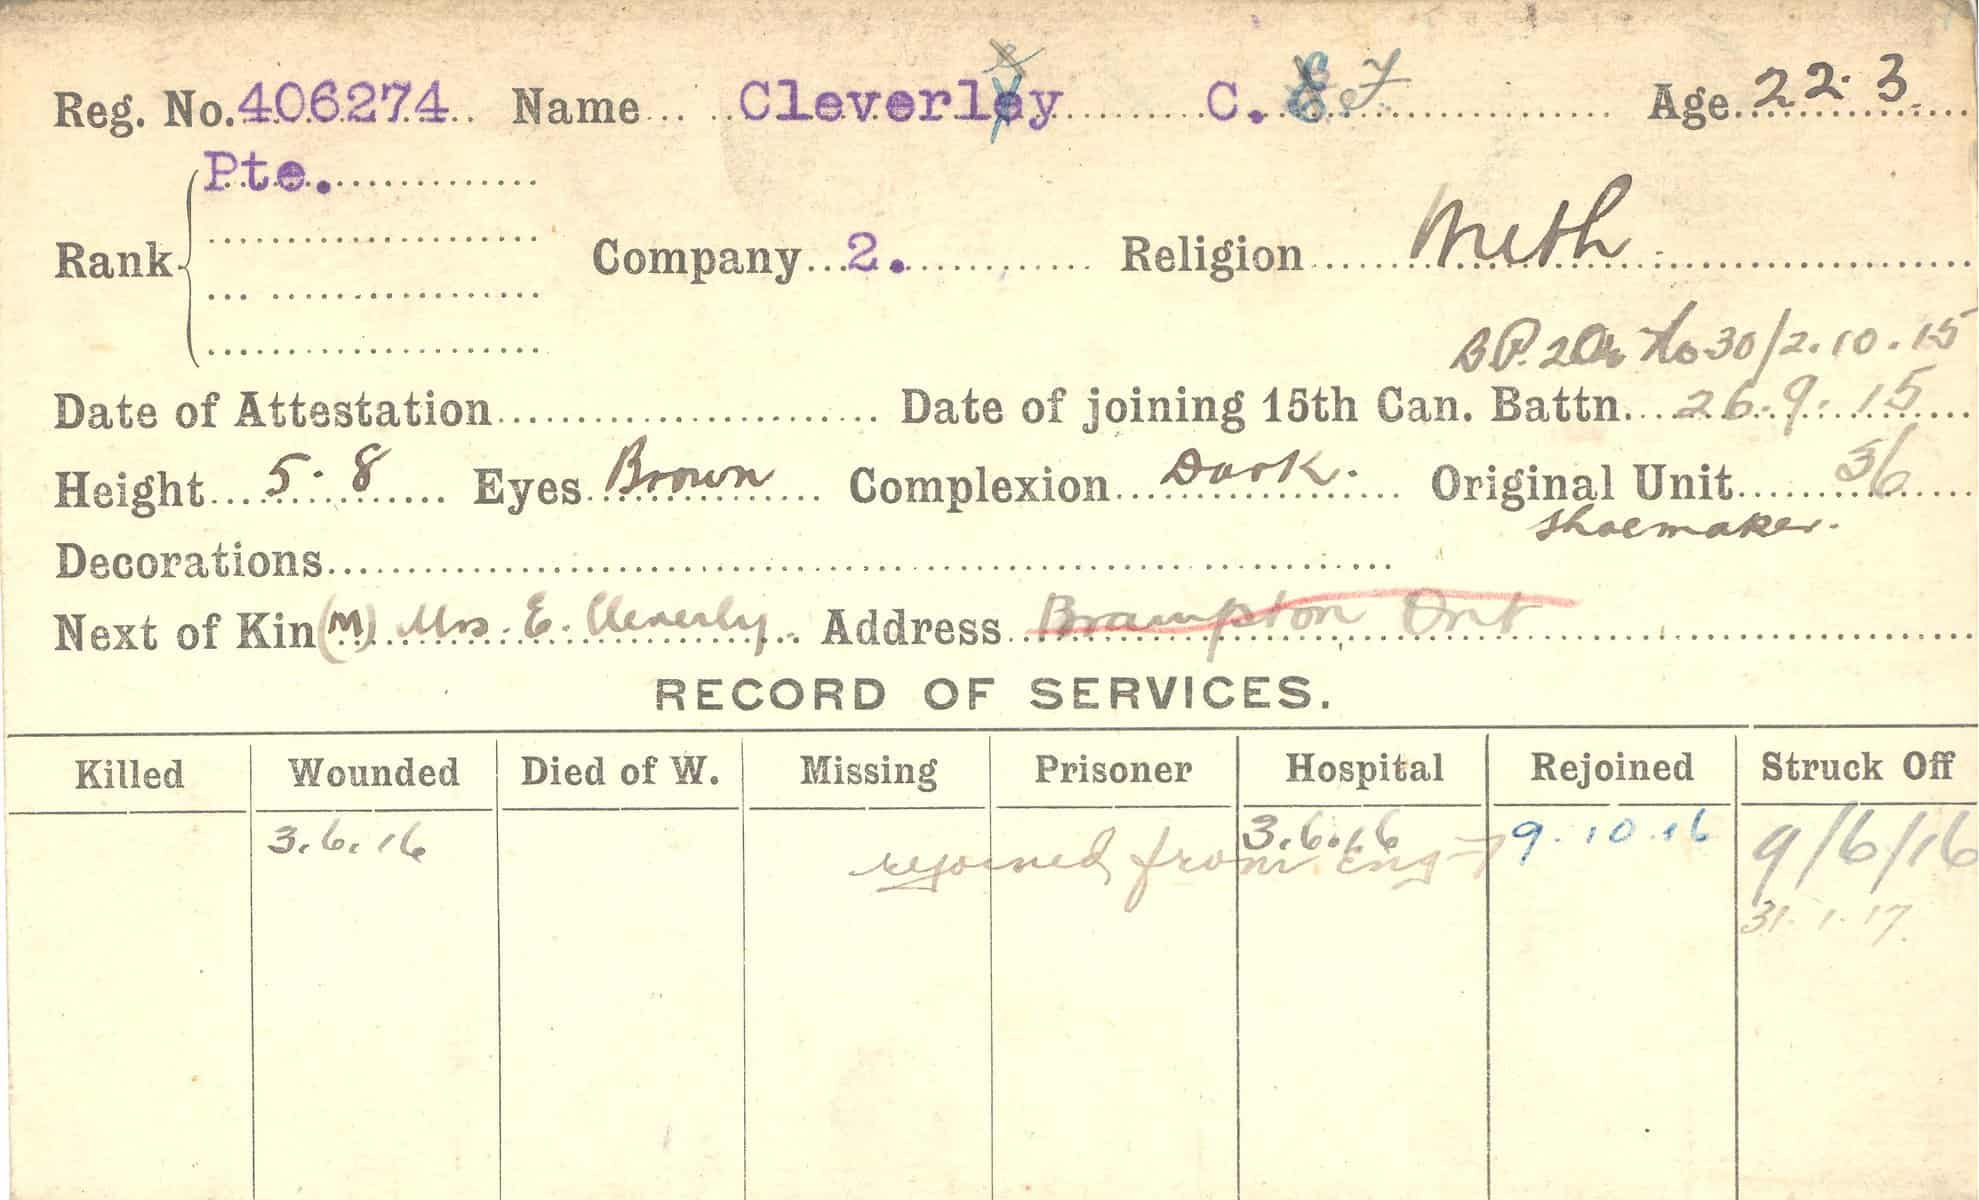 Reg. No. 406274 Name Cleverley C. F. Age 22. 3
Rank Pte.
Company 2. Religion Meth
30/2.10.15
Date of Attestation Date of joining 15th Can. Battn. 26.9.15
Height 5. 8 Eyes Brown Complexion Dark. Original Unit 36
shoemaker.
Decorations
Next of Kin (M) Mrs. E. Cleverly. Address Brampton Ont
RECORD OF SERVICES.
Killed Wounded Died of W. Missing Prisoner Hospital Rejoined Struck Off
3.6.16 3.6.16 9.10.16 9/6/16
rejoined from Eng
31.1.17.